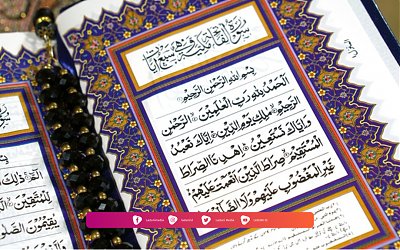 سُوْرَةُ الْفَاتِحَةِ مَكِّيَّةٌ وَّهِيَ سَبْعُ اٰيَاتٍ
بِسْمِ اللهِ الرَّحْمٰنِ الرَّحِيْمِ
اَلْحَمْدُ لِلّٰهِ رَبِّ الْعٰلَمِيْنَ الرَّحْمٰنِ
الرَّحِيْمِ مٰلِكِ يَوْمِ الدِّيْنِ اِيَّاكَ نَعْبُدُ
وَاِيَّاكَ نَسْتَعِيْنُ اِهْدِنَا الصِّرَاطَ
الْمُسْتَقِيْمَ صِرَاطَ الَّذِيْنَ اَنْعَمْتَ عَلَيْهِمْ
غَيْرِ الْمَغْضُوْبِ عَلَيْهِمْ وَلَا الضَّآلِّيْنَ
ذٰلِكَ
لِلْمُتَّقِيْنَ
يُقِيْمُوْنَ